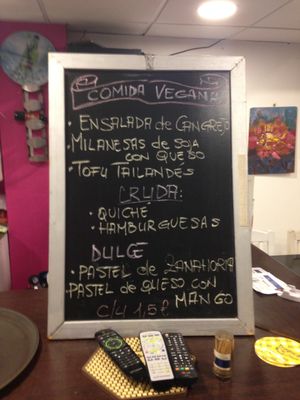 COMIDA VEGANA
• ENSALADA de CANGREJO
• MILANESAS de SOJA
CON QUESO
• TOFU TAILANDES
CRUDA:
• QUICHE
• HAMBURGUESAS
DULCE
• PASTEL de ZANAHORIA
• PASTEL de QUESO CON
MANGO
C/U 1,5€